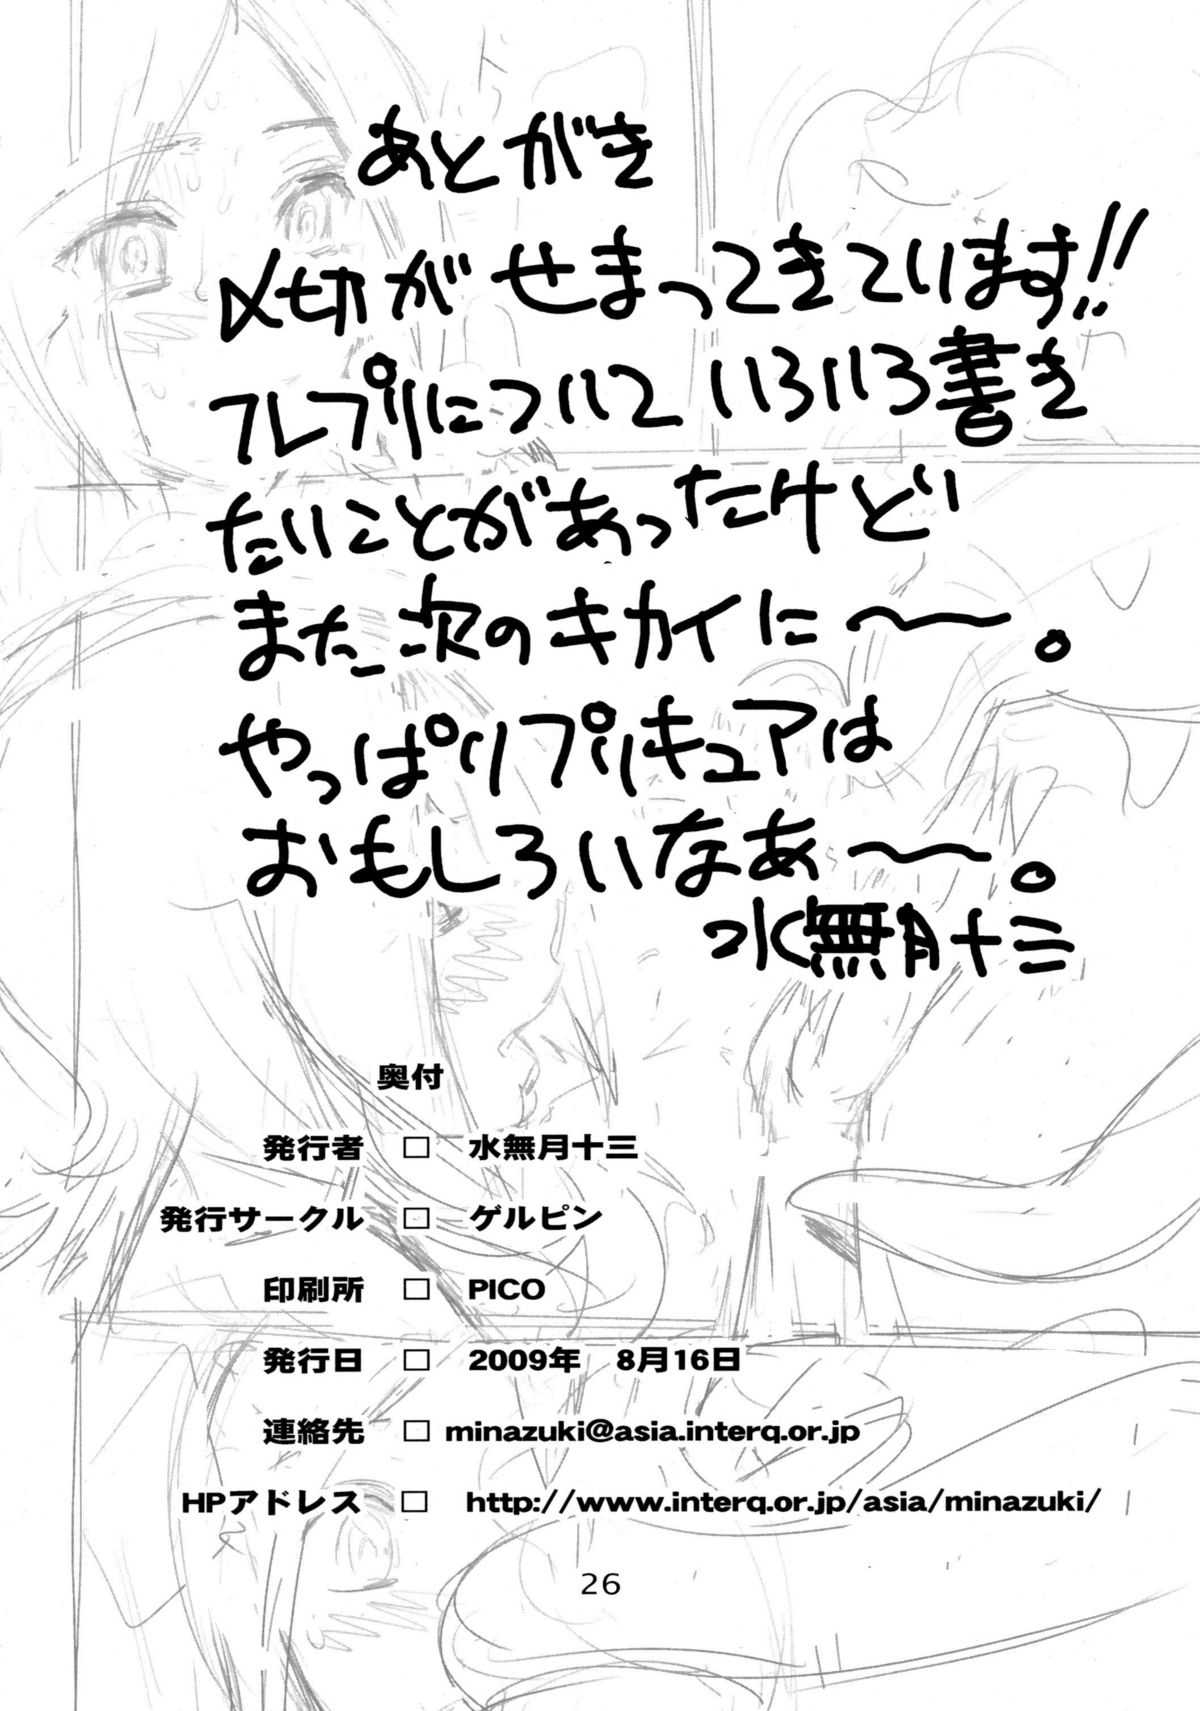 あとがき
〆切がせまってきています!!
フレプリについていろいろ書き
たいことがあったけど
また次のキカイに〜〜。
やっぱりプリキュアは
おもしろいなあ〜〜。
水無月十三
奥付
発行者 □ 水無月十三
発行サークル □ ゲルピン
印刷所 □ PICO
発行日 □ 2009年 8月16日
連絡先 □ minazuki@asia.interq.or.jp
HPアドレス □ http://www.interq.or.jp/asia/minazuki/
26